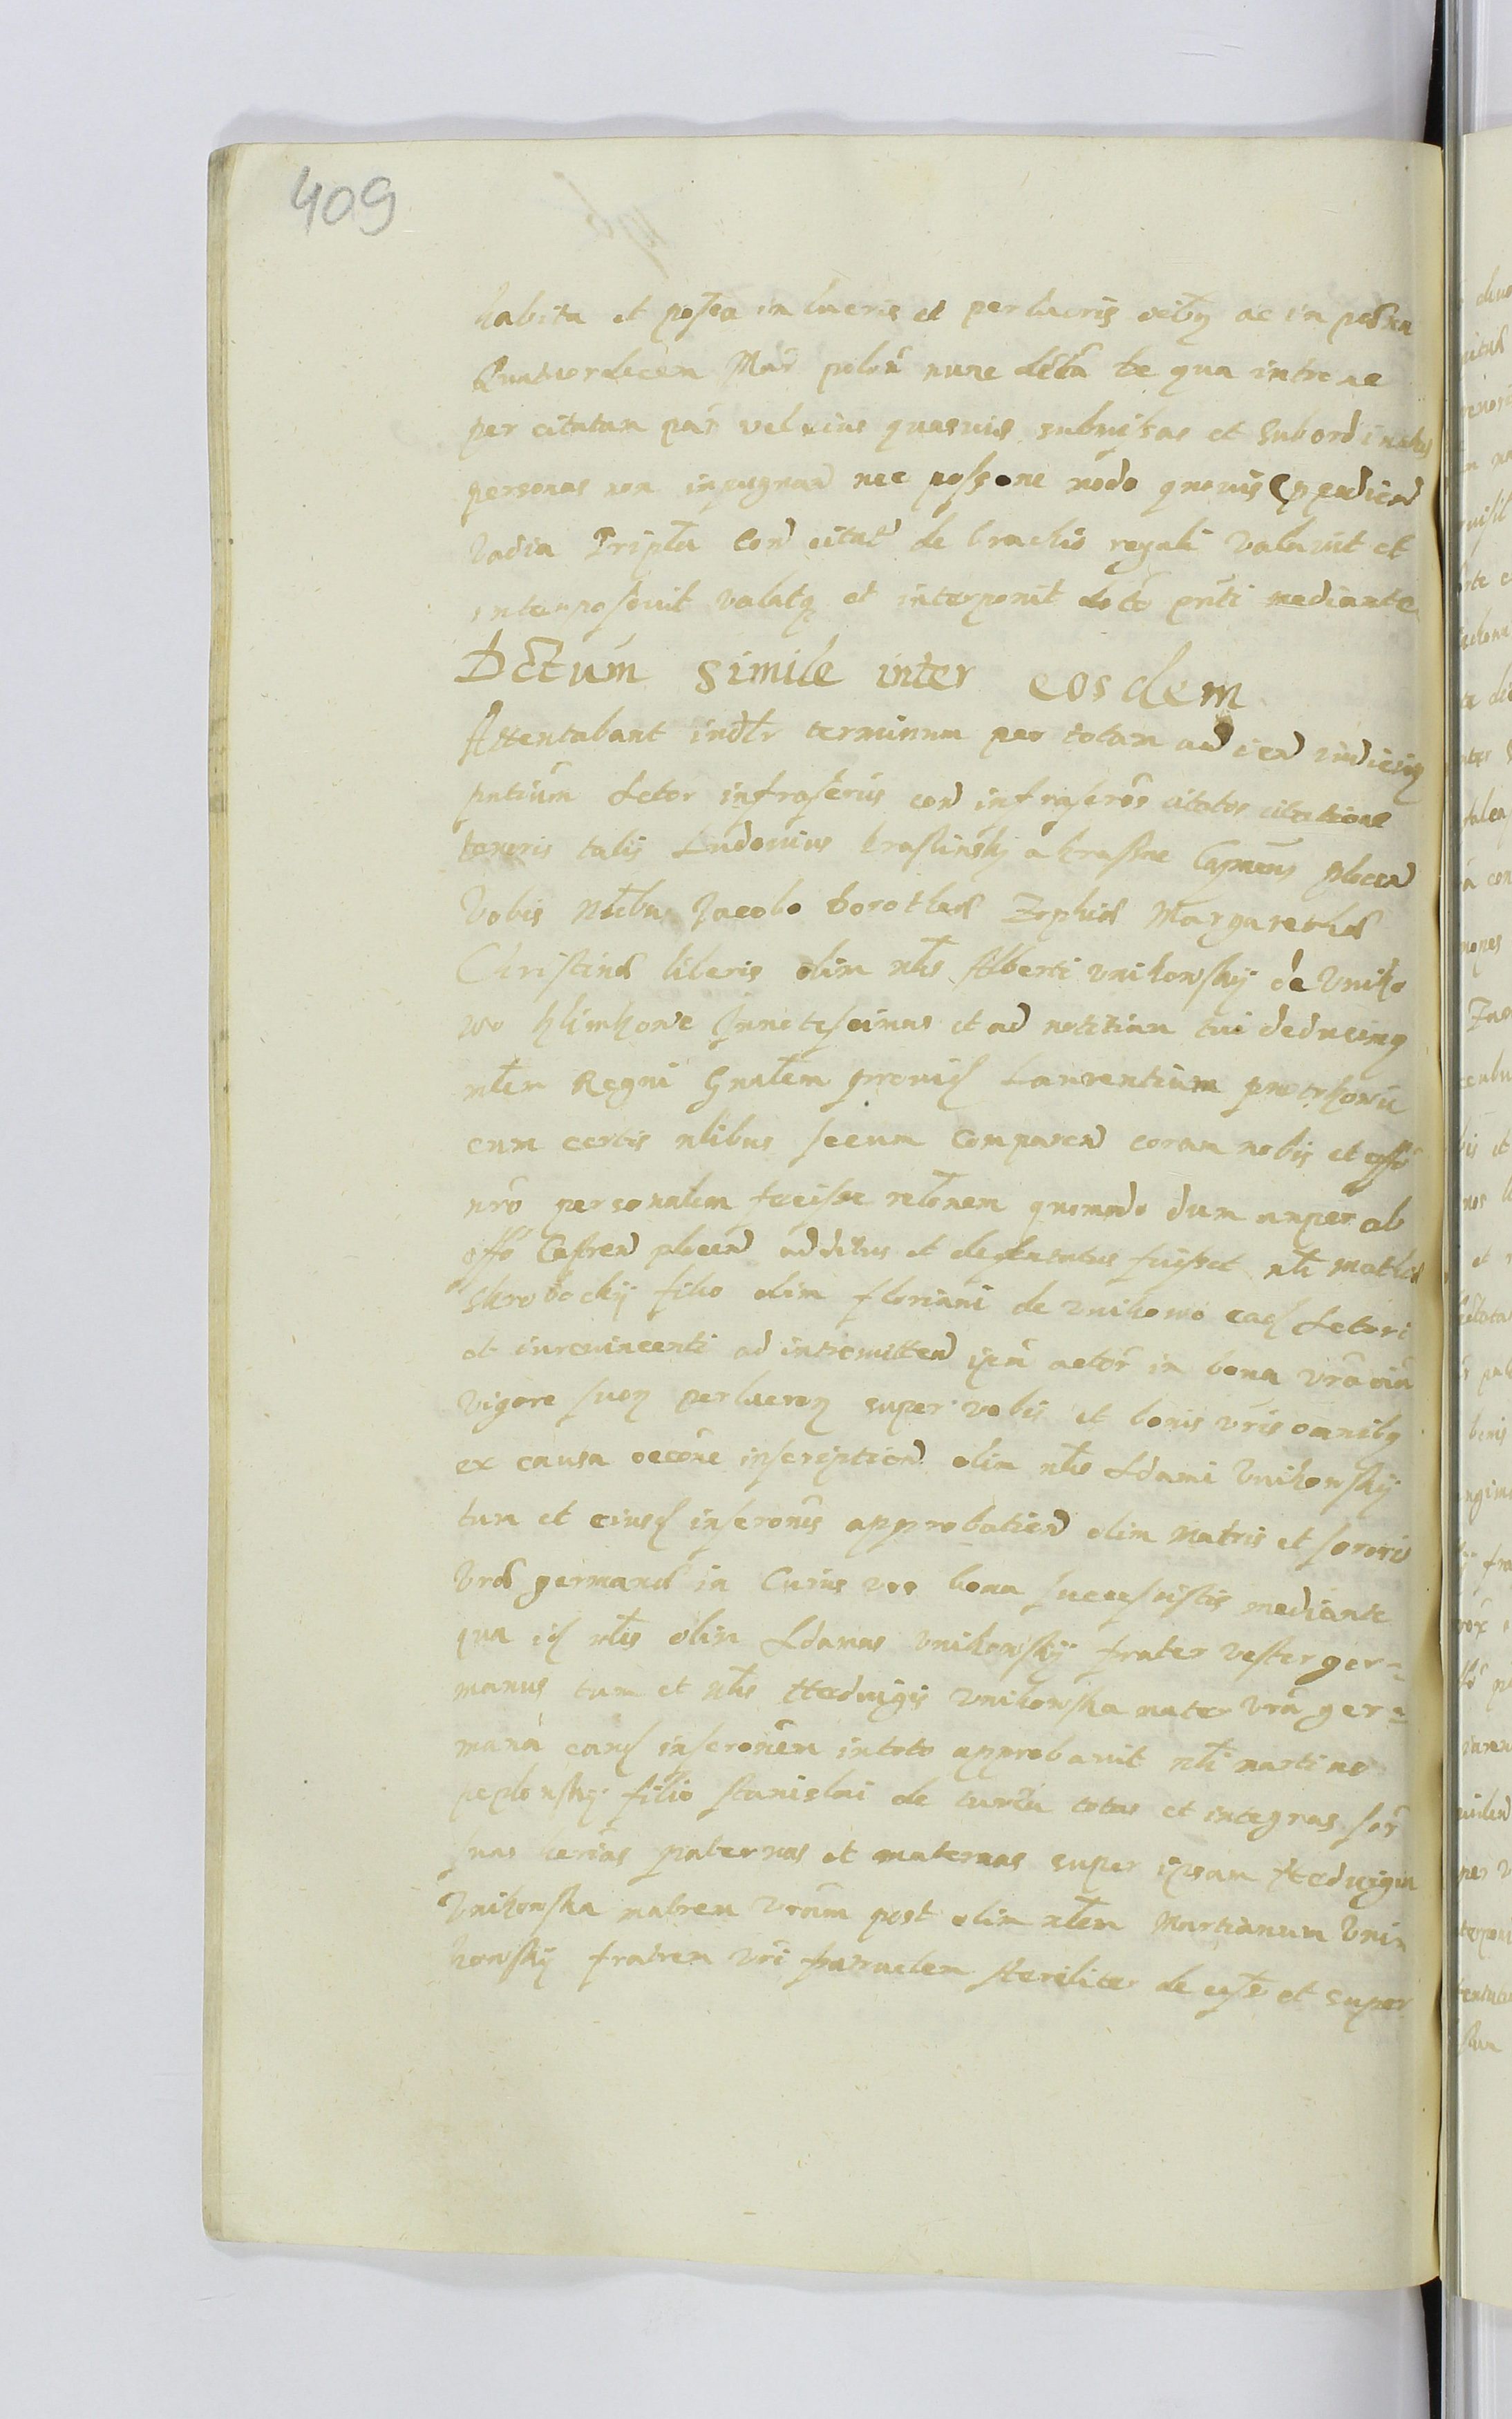 409
habita et postea in lucris et perlucris reibus ac in poena
Quatuordecem Mar polon nunc dicta de qua intro ne
per citatum pars vel eius quasuis submissas et subordinatas
personas non inpugnan nec possone modo quouis Ppediend
Vadia Tripla Con citat de brachio regali Valuauit et
interposouit valatq et interponit docto pnti mediante
Dctum simile inter eosdem
Attentabant indlr terminum peo totam ad iend iudicioq
pntium Actor infrascrius con infrascros citatos citatione
tenoris talis Ludouius krasinsky a krasne Capneus plocen
Vobis Nlibu Jacobo Dorothea Zophia Margaretha
Christina liberis olim nlis Alberti vnikowsky de Vniko
wo klimkowe Innotescimus et ad notitiam tui deducimq
nlem Regni Gnalem prouid Laurentium
cum certis nlibus secum Comparen coram nobis et offo
nro personalem fecisse relonem quomodo dum nuper ab
offo Castren plocen additus et deputatus fuisset nli Mathia
Skrobocky filio olim floriani de vnikowo eaq Actori
et iureuincenti ad intromitten ipm actor in bona vra oia
vigore suoq perlucroq super vobis et bonis vris omnibq
ex causa occone inscription olim nlis Adami Vnikowsky
tum et eiusd inscronis approbation olim Matris et sororis
Vra germana in Cuius vos bona successistis mediante
qua id nlis olim Adamus vnikowsky frater vester ger=
manus tum et Nlis Heduigis Vnikowska mater vra ger=
mana eand inscronem intoto approbauit nli martino
peplonsky filio Stanislai de turza totas et integras sor
suas herias paternas et maternas super ipsam Heduigim
Vnikowska matrem vram post olim nlem Martianum Vni
kowsky fratrem vri patruelem steriliter de cesse et super